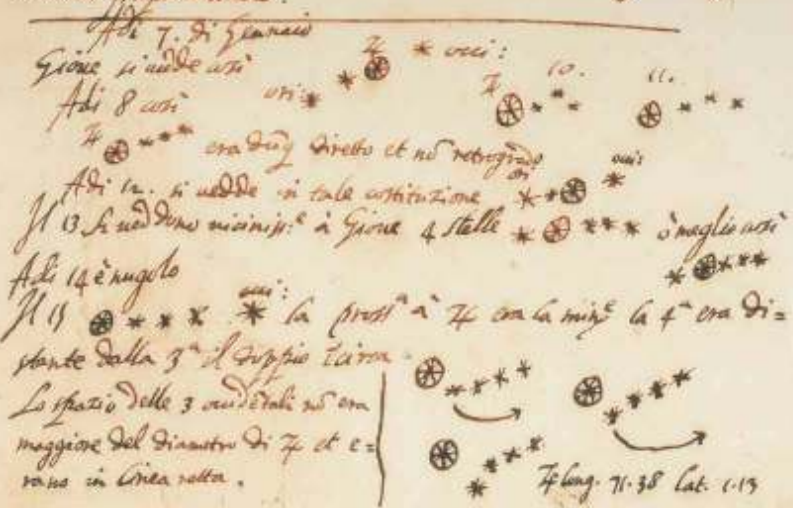 Adi 7. di Gennaio
Giove si vedde così ♃ occi:
Adi 8 così ori: ♃ 10. 11.
♃ era dūq diretto et nō retrogrado
Adi 12. si vedde in tale costituzione ori occi
Il 13 si veddono viciniss.e à Giove 4 stelle ò meglio così
Adi 14 è nugolo
Il 15 occi: la pross.a à ♃ era la min.e la 4.a era di=
stante dalla 3.a il doppio circa
Lo spazio delle 3 occidētali nō era
maggiore del diametro di ♃ et e=
rano in linea retta.
♃ long. 71.38 lat. 1.13